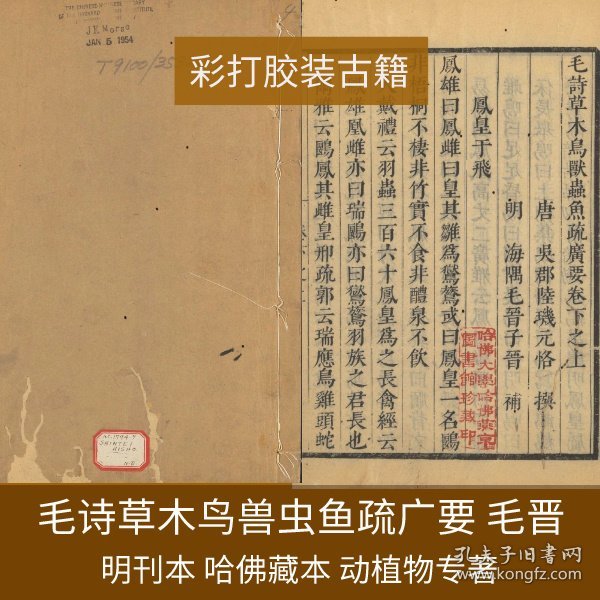 彩打胶装古籍
J.H.Morse
JAN 5 1954
T9100/35
毛詩草木鳥獸蟲魚疏廣要卷下之上
唐 吳郡陸璣元恪 撰
明 海隅毛晉子晉 補
鳳皇于飛
鳳雄曰鳳雌曰皇其雛為鸑鷟或曰鳳皇一名鶠
非梧桐不棲非竹實不食非醴泉不飲
戴禮云羽蟲三百六十鳳皇為之長禽經云
雄凰雌亦曰瑞鶠亦曰鸑鷟羽族之君長也
雅云鶠鳳其雌皇邢疏郭云瑞應鳥雞頭蛇
哈佛大學哈佛燕京
圖書館珍藏印
毛诗草木鸟兽虫鱼疏广要 毛晋
明刊本 哈佛藏本 动植物专著
孔夫子旧书网
www.kongfz.com